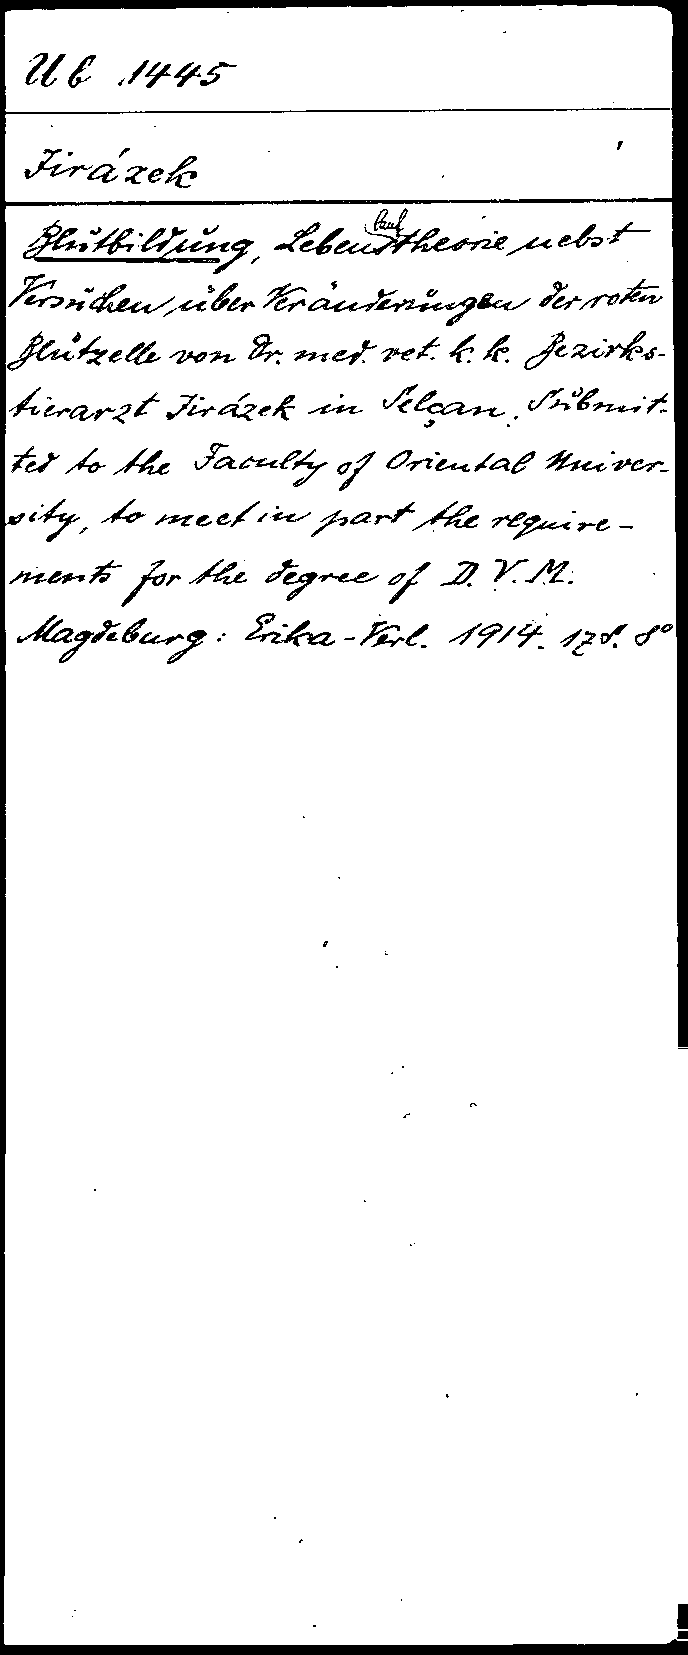 Ub 1445
Jirázek
Blutbildung, Lebenstheorie nebst
Versuchen über Veränderungen der roten
Blutzelle von Dr. med. vet. k. k. Bezirks-
tierarzt Jirázek in Selçan. Submit-
ted to the Faculty of Oriental Univer-
sity, to meet in part the require-
ments for the degree of D. V. M.
Magdeburg: Erika-Verl. 1914. 17 S. 8°